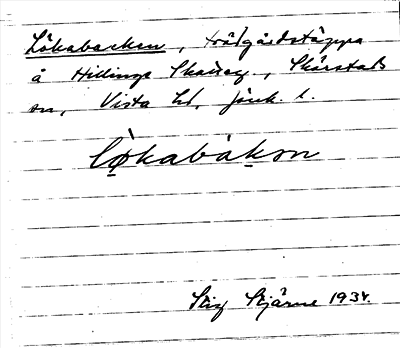 Lökabacken, trädgårdstäppa
å Hillinge Skatteg., Skärstads
sn, Vista hd, jönk. l.
lø̀kabàkən
Stig Stjärne 1934.